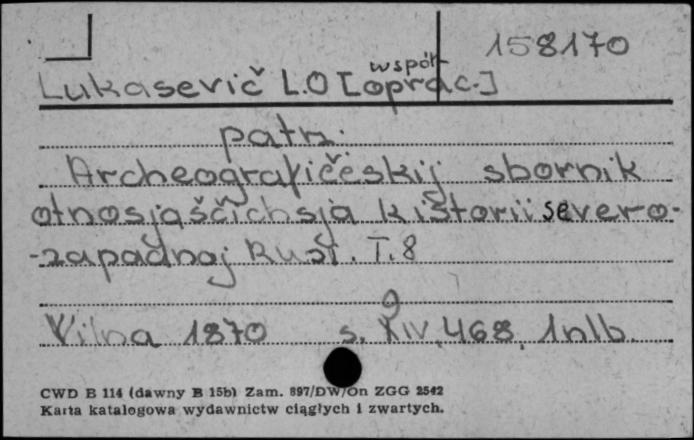 158170
współ-
Lukasevič L.O [oprac.]
patrz.
Archeografičeskij sbornik
otnosjaščichsja k istorii severo-
-zapadnoj Rusi. T.8
9
Vilna 1870 s. XIV, 468, 1nlb.
CWD B 114 (dawny B 15b) Zam. 897/DW/On ZGG 2542
Karta katalogowa wydawnictw ciągłych i zwartych.